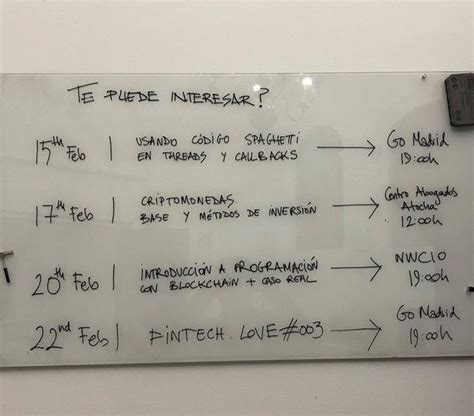 TE PUEDE INTERESAR?
15th Feb | USANDO CÓDIGO SPAGHETTI
EN THREADS Y CALLBACKS → Go Madrid
19:00h
17th Feb | CRIPTOMONEDAS
BASE Y MÉTODOS DE INVERSIÓN → Centro Abogados
Atocha
12:00h
20th Feb | INTRODUCCIÓN A PROGRAMACIÓN
CON BLOCKCHAIN + CASO REAL → NWC10
19:00h
22nd Feb | PINTECH.LOVE#003 → Go Madrid
19:00h